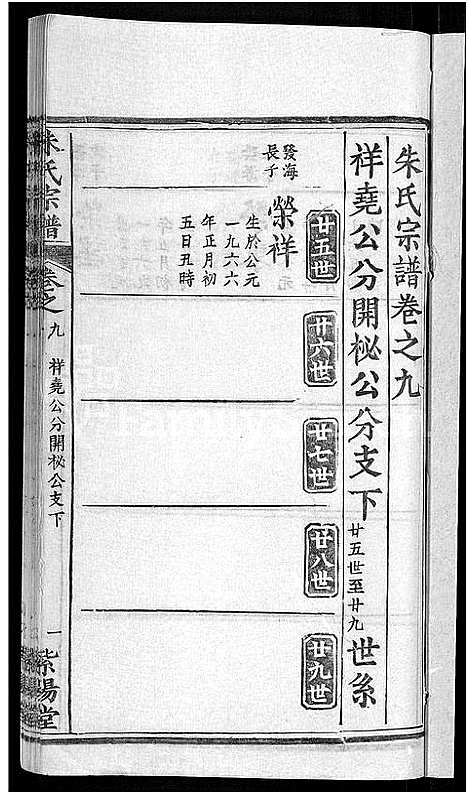 朱氏宗譜卷之九
祥堯公分開柲公分支下廿五世至廿九世系
廿五世
廿六世
廿七世
廿八世
廿九世
發海
長子
榮祥
生於公元
一九六六
年正月初
五日丑時
朱氏宗譜
卷之九
祥堯公分開柲公支下
一
紫陽堂